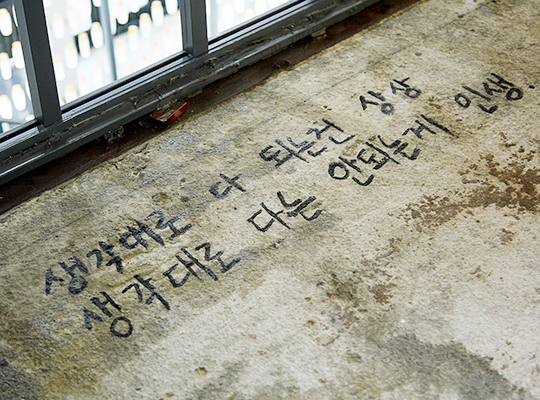 생각대로 다 되는건 상상
생각대로 다는 안되는게 인생.